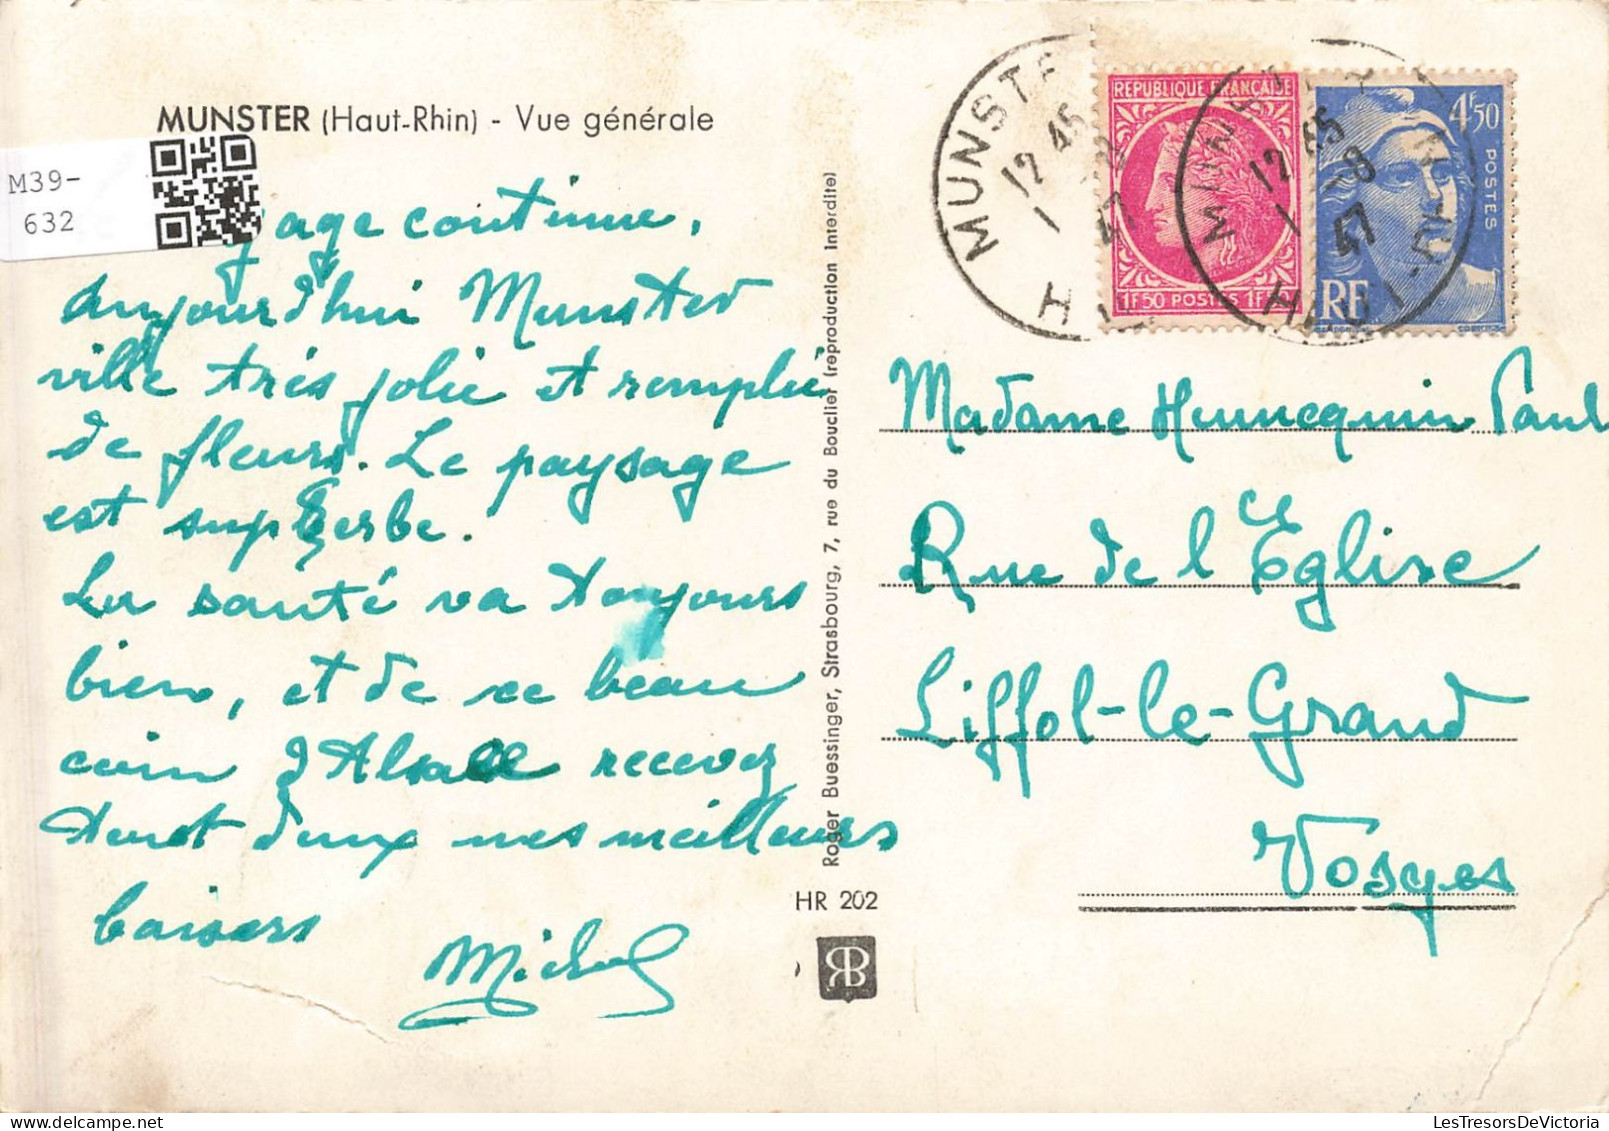 MUNSTER (Haut-Rhin) - Vue générale
M39-
632
yage continue,
aujourd'hui Munster
ville très jolie et remplie
de fleurs. Le paysage
est superbe.
La santé va toujours
bien, et de ce beau
coin d'Alsace recevez
tout deux nos meilleurs
baisers
Michel
Roger Buessinger, Strasbourg, 7, rue du Bouclier (reproduction interdite)
HR 202
RB
MUNSTE
12 45
MUNSTER
12 45
1 -8
47
HAUT-RHIN
REPUBLIQUE FRANÇAISE
1F50 POSTES 1F50
4F50
POSTES
RF
Madame Hunnequin Paul
Rue de l'Eglise
Liffol-le-Grand
Vosges
LesTresorsDeVictoria.com